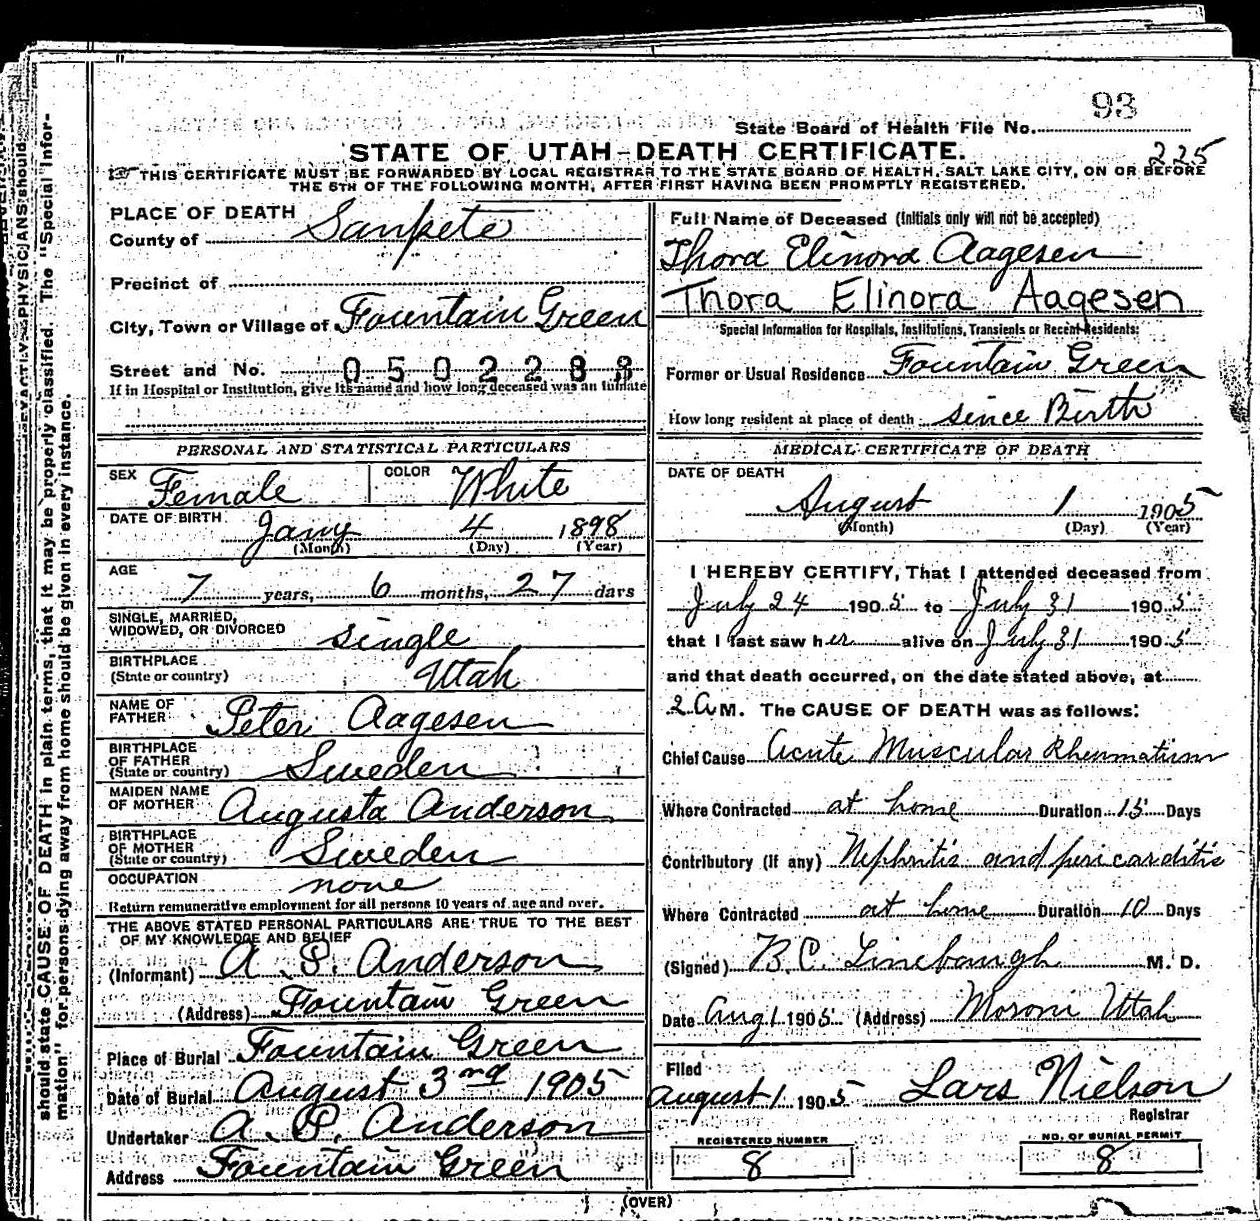 93
State Board of Health File No.
STATE OF UTAH-DEATH CERTIFICATE.
225
THIS CERTIFICATE MUST BE FORWARDED BY LOCAL REGISTRAR TO THE STATE BOARD OF HEALTH, SALT LAKE CITY, ON OR BEFORE
THE 5TH OF THE FOLLOWING MONTH, AFTER FIRST HAVING BEEN PROMPTLY REGISTERED.
PLACE OF DEATH
County of Sanpete
Precinct of
City, Town or Village of Fountain Green
Street and No. 0502283
If in Hospital or Institution, give its name and how long deceased was an inmate
PERSONAL AND STATISTICAL PARTICULARS
SEX Female COLOR White
DATE OF BIRTH Jany 4 1898
(Month) (Day) (Year)
AGE
7 years, 6 months, 27 days
SINGLE, MARRIED,
WIDOWED, OR DIVORCED single
BIRTHPLACE
(State or country) Utah
NAME OF
FATHER Peter Aagesen
BIRTHPLACE
OF FATHER
(State or country) Sweden
MAIDEN NAME
OF MOTHER Augusta Anderson
BIRTHPLACE
OF MOTHER
(State or country) Sweden
OCCUPATION none
Return remunerative employment for all persons 10 years of age and over.
THE ABOVE STATED PERSONAL PARTICULARS ARE TRUE TO THE BEST
OF MY KNOWLEDGE AND BELIEF
(Informant) A. P. Anderson
(Address) Fountain Green
Place of Burial Fountain Green
Date of Burial August 3rd 1905
Undertaker A. P. Anderson
Address Fountain Green
Full Name of Deceased (Initials only will not be accepted)
Thora Elinora Aagesen
Thora Elinora Aagesen
Special Information for Hospitals, Institutions, Transients or Recent Residents:
Former or Usual Residence Fountain Green
How long resident at place of death since Birth
MEDICAL CERTIFICATE OF DEATH
DATE OF DEATH
August 1 1905
(Month) (Day) (Year)
I HEREBY CERTIFY, That I attended deceased from
July 24 1905 to July 31 1905
that I last saw her alive on July 31 1905
and that death occurred, on the date stated above, at
2 A M. The CAUSE OF DEATH was as follows:
Chief Cause Acute Muscular Rheumatism
Where Contracted at home Duration 15 Days
Contributory (If any) Nephritis and pericarditis
Where Contracted at home Duration 10 Days
(Signed) B.C. Linebaugh M. D.
Date Aug 1 1905 (Address) Moroni Utah
Filed
August 1 1905 Lars Nielson
Registrar
REGISTERED NUMBER
8
NO. OF BURIAL PERMIT
8
(OVER)
PHYSICIANS should
should state CAUSE OF DEATH in plain terms, that it may be properly classified. The "Special Infor-
mation" for persons dying away from home should be given in every instance.